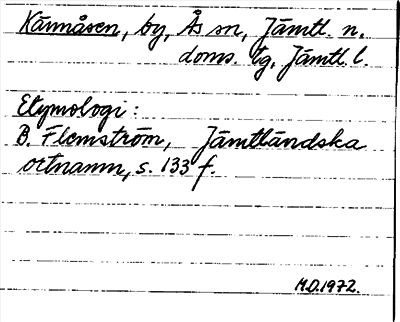 Kännåsen, by, Ås sn, Jämtl. n.
doms. tg, Jämtl. l.
Etymologi:
B. Flemström, Jämtländska
ortnamn, s. 133 f.
M.O.1972.